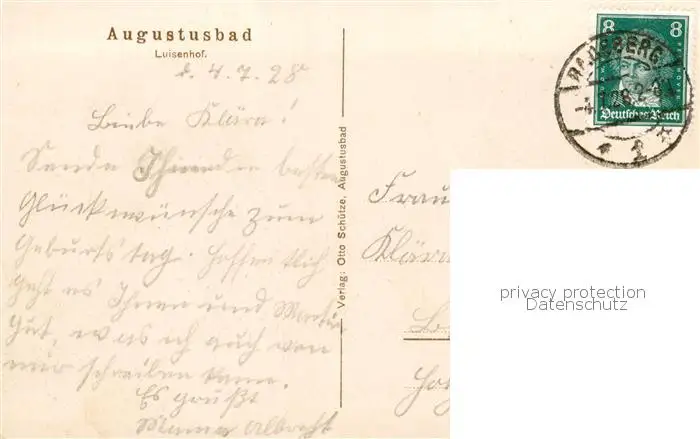 Augustusbad
Luisenhof.
d. 4.7.28
Liebe Klära!
Sende Ihnen die besten
Glückwünsche zum
Geburtstag. Hoffentlich
geht es Ihnen und
gut, was ich auch von
mir schreiben kann.
Es grüßt
Mama Albrecht
Verlag: Otto Schütze, Augustusbad
8 8
Deutsches Reich
RADEBERG
Frau
Klära
privacy protection
Datenschutz